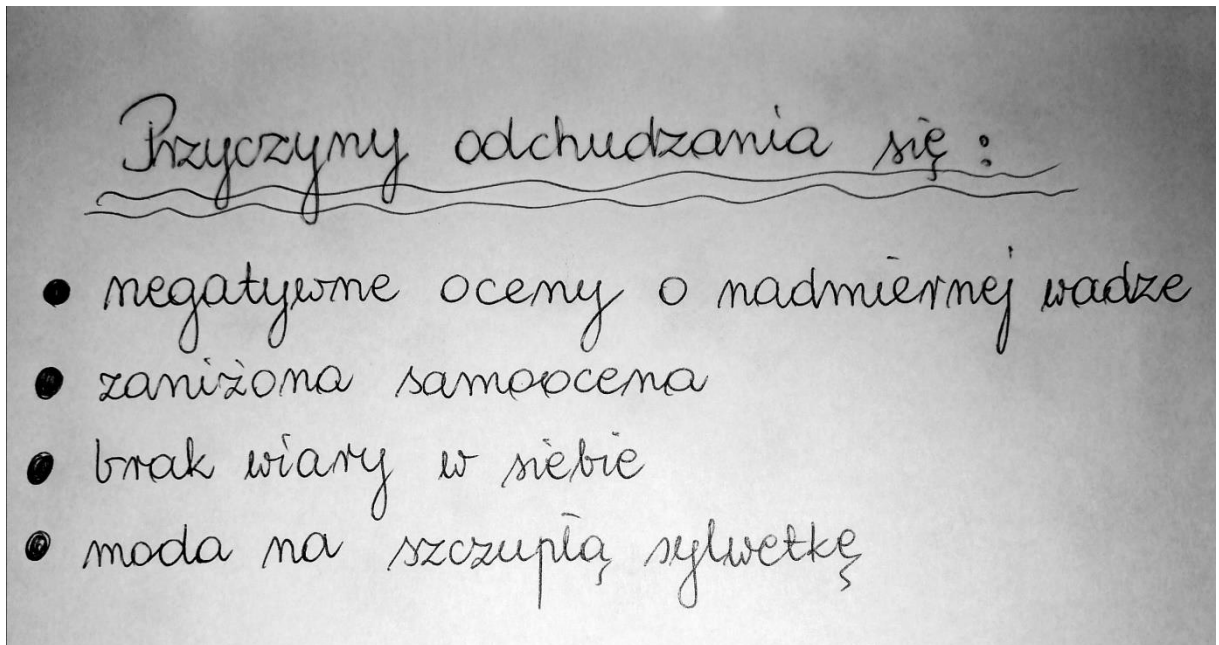 Przyczyny odchudzania się:
• negatywne oceny o nadmiernej wadze
• zaniżona samoocena
• brak wiary w siebie
• moda na szczupłą sylwetkę